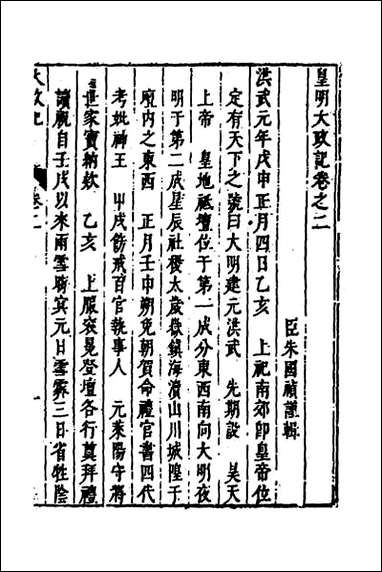 皇明大政記卷之二
臣朱國禎謹輯
洪武元年戊申正月四日乙亥　上祀南郊卽皇帝位
定有天下之號曰大明建元洪武　先期設　昊天
上帝　皇地祗壇位于第一成分東西南向大明夜
明于第二成星辰社稷太歲嶽鎮海瀆山川城隍于
壝內之東西　正月壬申朔免朝賀命禮官書四代
考妣神王　甲戌飭戒百官執事人　元萊陽守將
世家寶納欸　乙亥　上服袞冕登壇各行奠拜禮
讀祝自壬戌以來雨雪時宾元日雪霽三日省牲陰
大政記
卷二
一